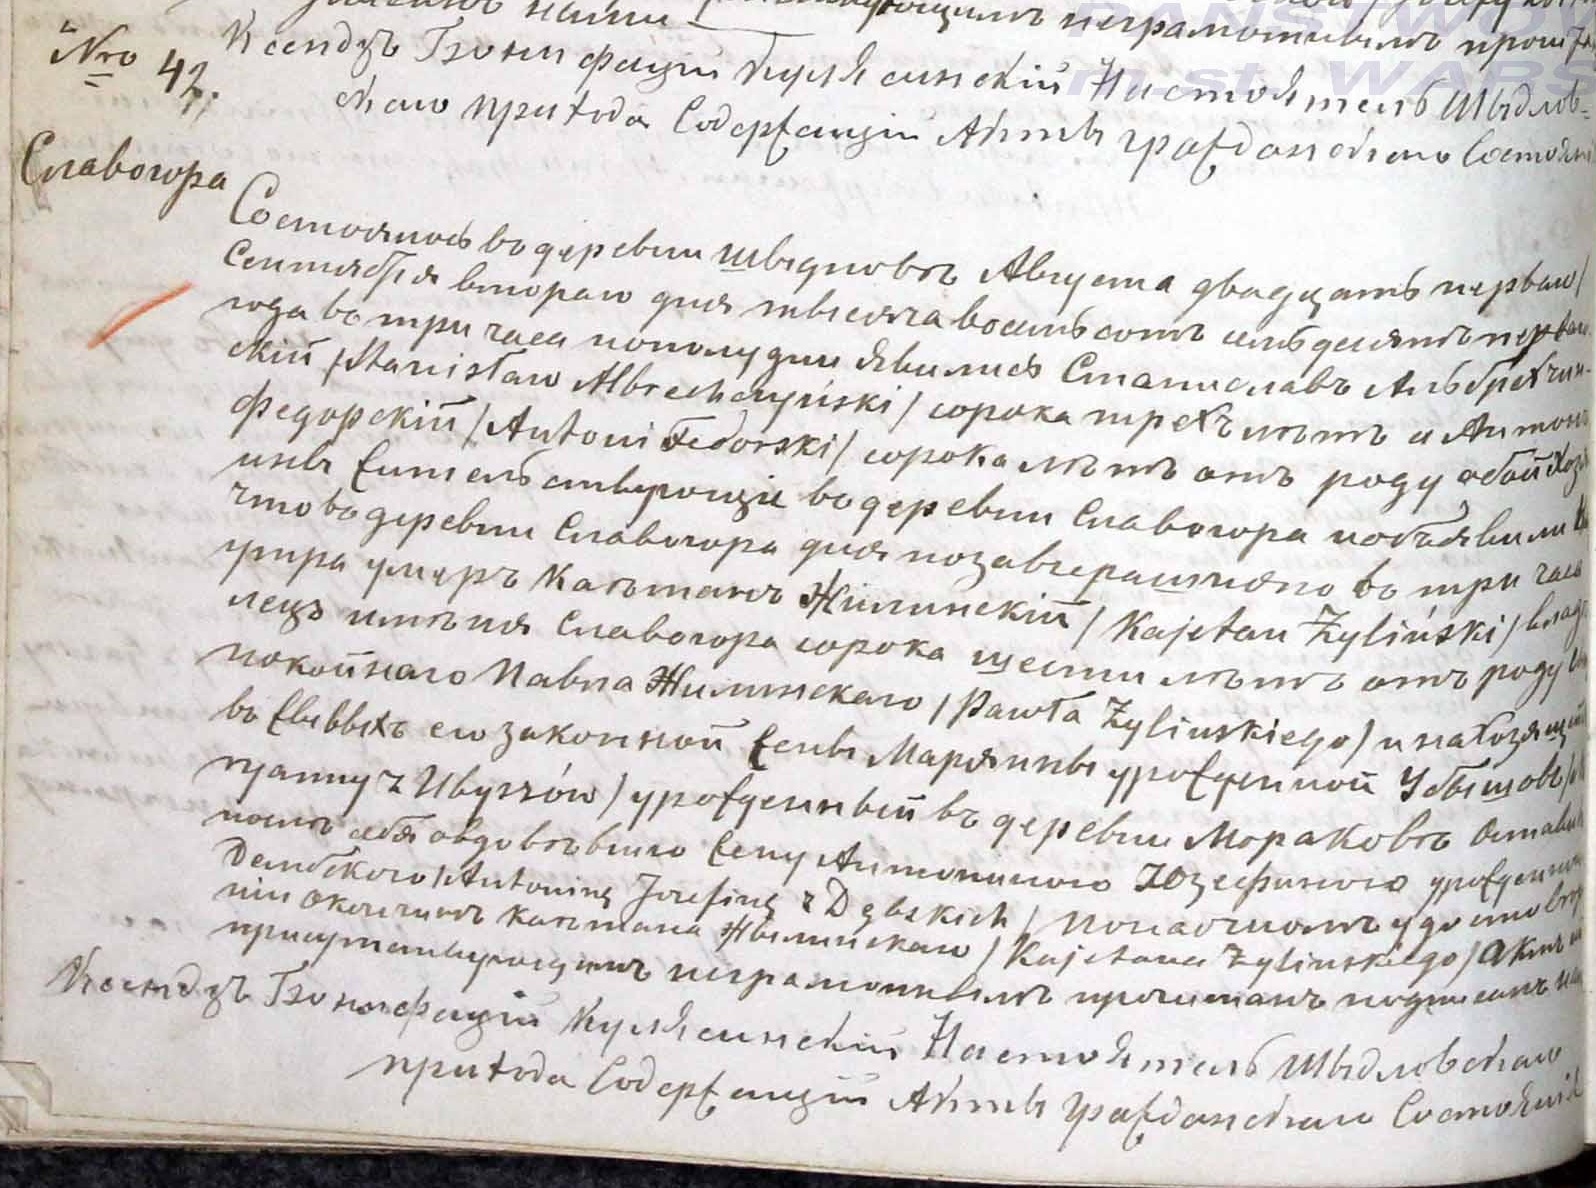 нами присутствующимъ неграмотнымъ прочитан
Ксендзъ Бонифацiй Кулясинскiй Настоятель Шыдлов-
скаго прихода Содержащiй Акты гражданскаго Состоянiя
Nro 42.
Славогора
Состоялось въ деревни Шыдловѣ Августа двадцать перваго /
Сентября втораго дня тысяча восемьсотъ семьдесятъ перваго
года въ три часа пополудни явились Станиславъ Альбрехчин-
скiй /Stanisław Albrechczyński/ сорока трехъ лѣтъ и Антонi
Федорскiй /Antoni Fedorski/ сорока лѣтъ отъ роду обай Хозя
ины жительствующiе въ деревни Славогора и объявили
что въ деревни Славогора дня позавчерашняго въ три часы
утра умеръ Каэтанъ Жилинскiй /Kajetan Żyliński/ влад
лецъ имѣнiя Славогора сорока шести лѣтъ отъ роду
покойнаго Павла Жилинскаго /Pawła Żylinskiego/ и находящей
въ живыхъ его законной жены Марянны урожденной Убышовъ
ryanny z Ubyszów/ урожденный въ деревни Мораковѣ Оставив
послѣ себя овдовѣвшую жену Антонину Юзефину урожденную
Дембскою /Antoninę Jozefinę z Dębskich/ По наочномъ удостовѣр
нiи окончинѣ Каэтана Жылинскаго /Kajetana Żylinskiego/ Актъ
присутствующимъ неграмотнымъ прочитанъ подписанъ
Ксендзъ Бонифацiй Кулясинскiй Настоятель Шыдловскаго
прихода Содержащiй Акты гражданскаго Состоянiя